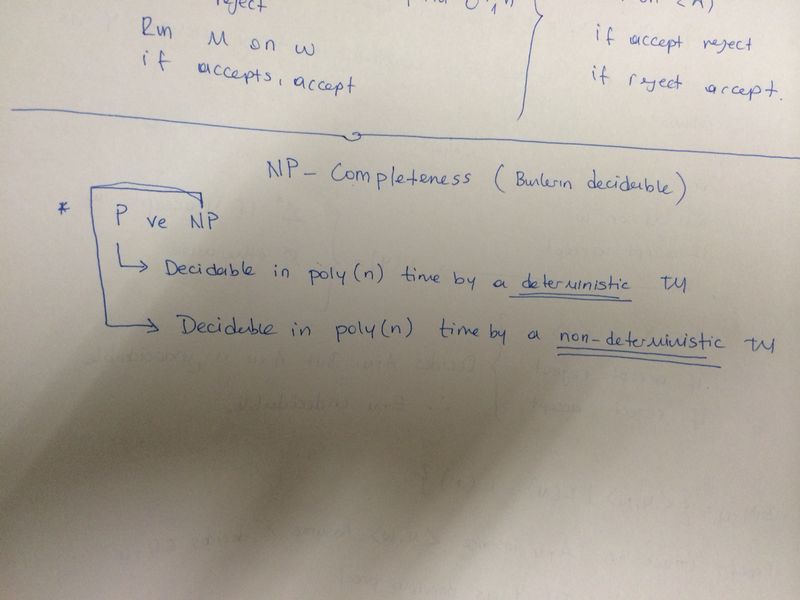 reject
Run M on w
if accepts, accept
if accept reject
if reject accept.
NP- Completeness (Bunların decidable)
* P ve NP
Decidable in poly(n) time by a deterministic TM
Decidable in poly(n) time by a non-deterministic TM